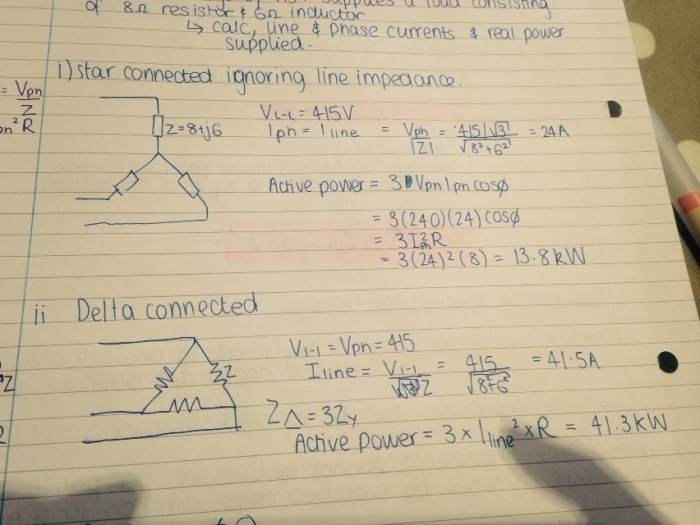 supplies a load consisting
of 8Ω resistor & 6Ω inductor
↳ calc, line & phase currents & real power
supplied.
i) star connected ignoring line impedance.
= Vpn
Z
pn² R
Z=8+j6
VL-L = 415V
Iph = Iline = Vph / |Z| = 415/√3 / √8²+6² = 24A
Active power = 3 Vpn Ipn cosφ
= 3(240)(24) cosφ
= 3I²ph R
= 3(24)²(8) = 13.8kW
ii Delta connected
Z
Vl-l = Vpn = 415
Iline = Vl-l / Z = 415 / √8²+6² = 41.5A
Z
Z△ = 3Zy
Active power = 3 x Iline² x R = 41.3kW